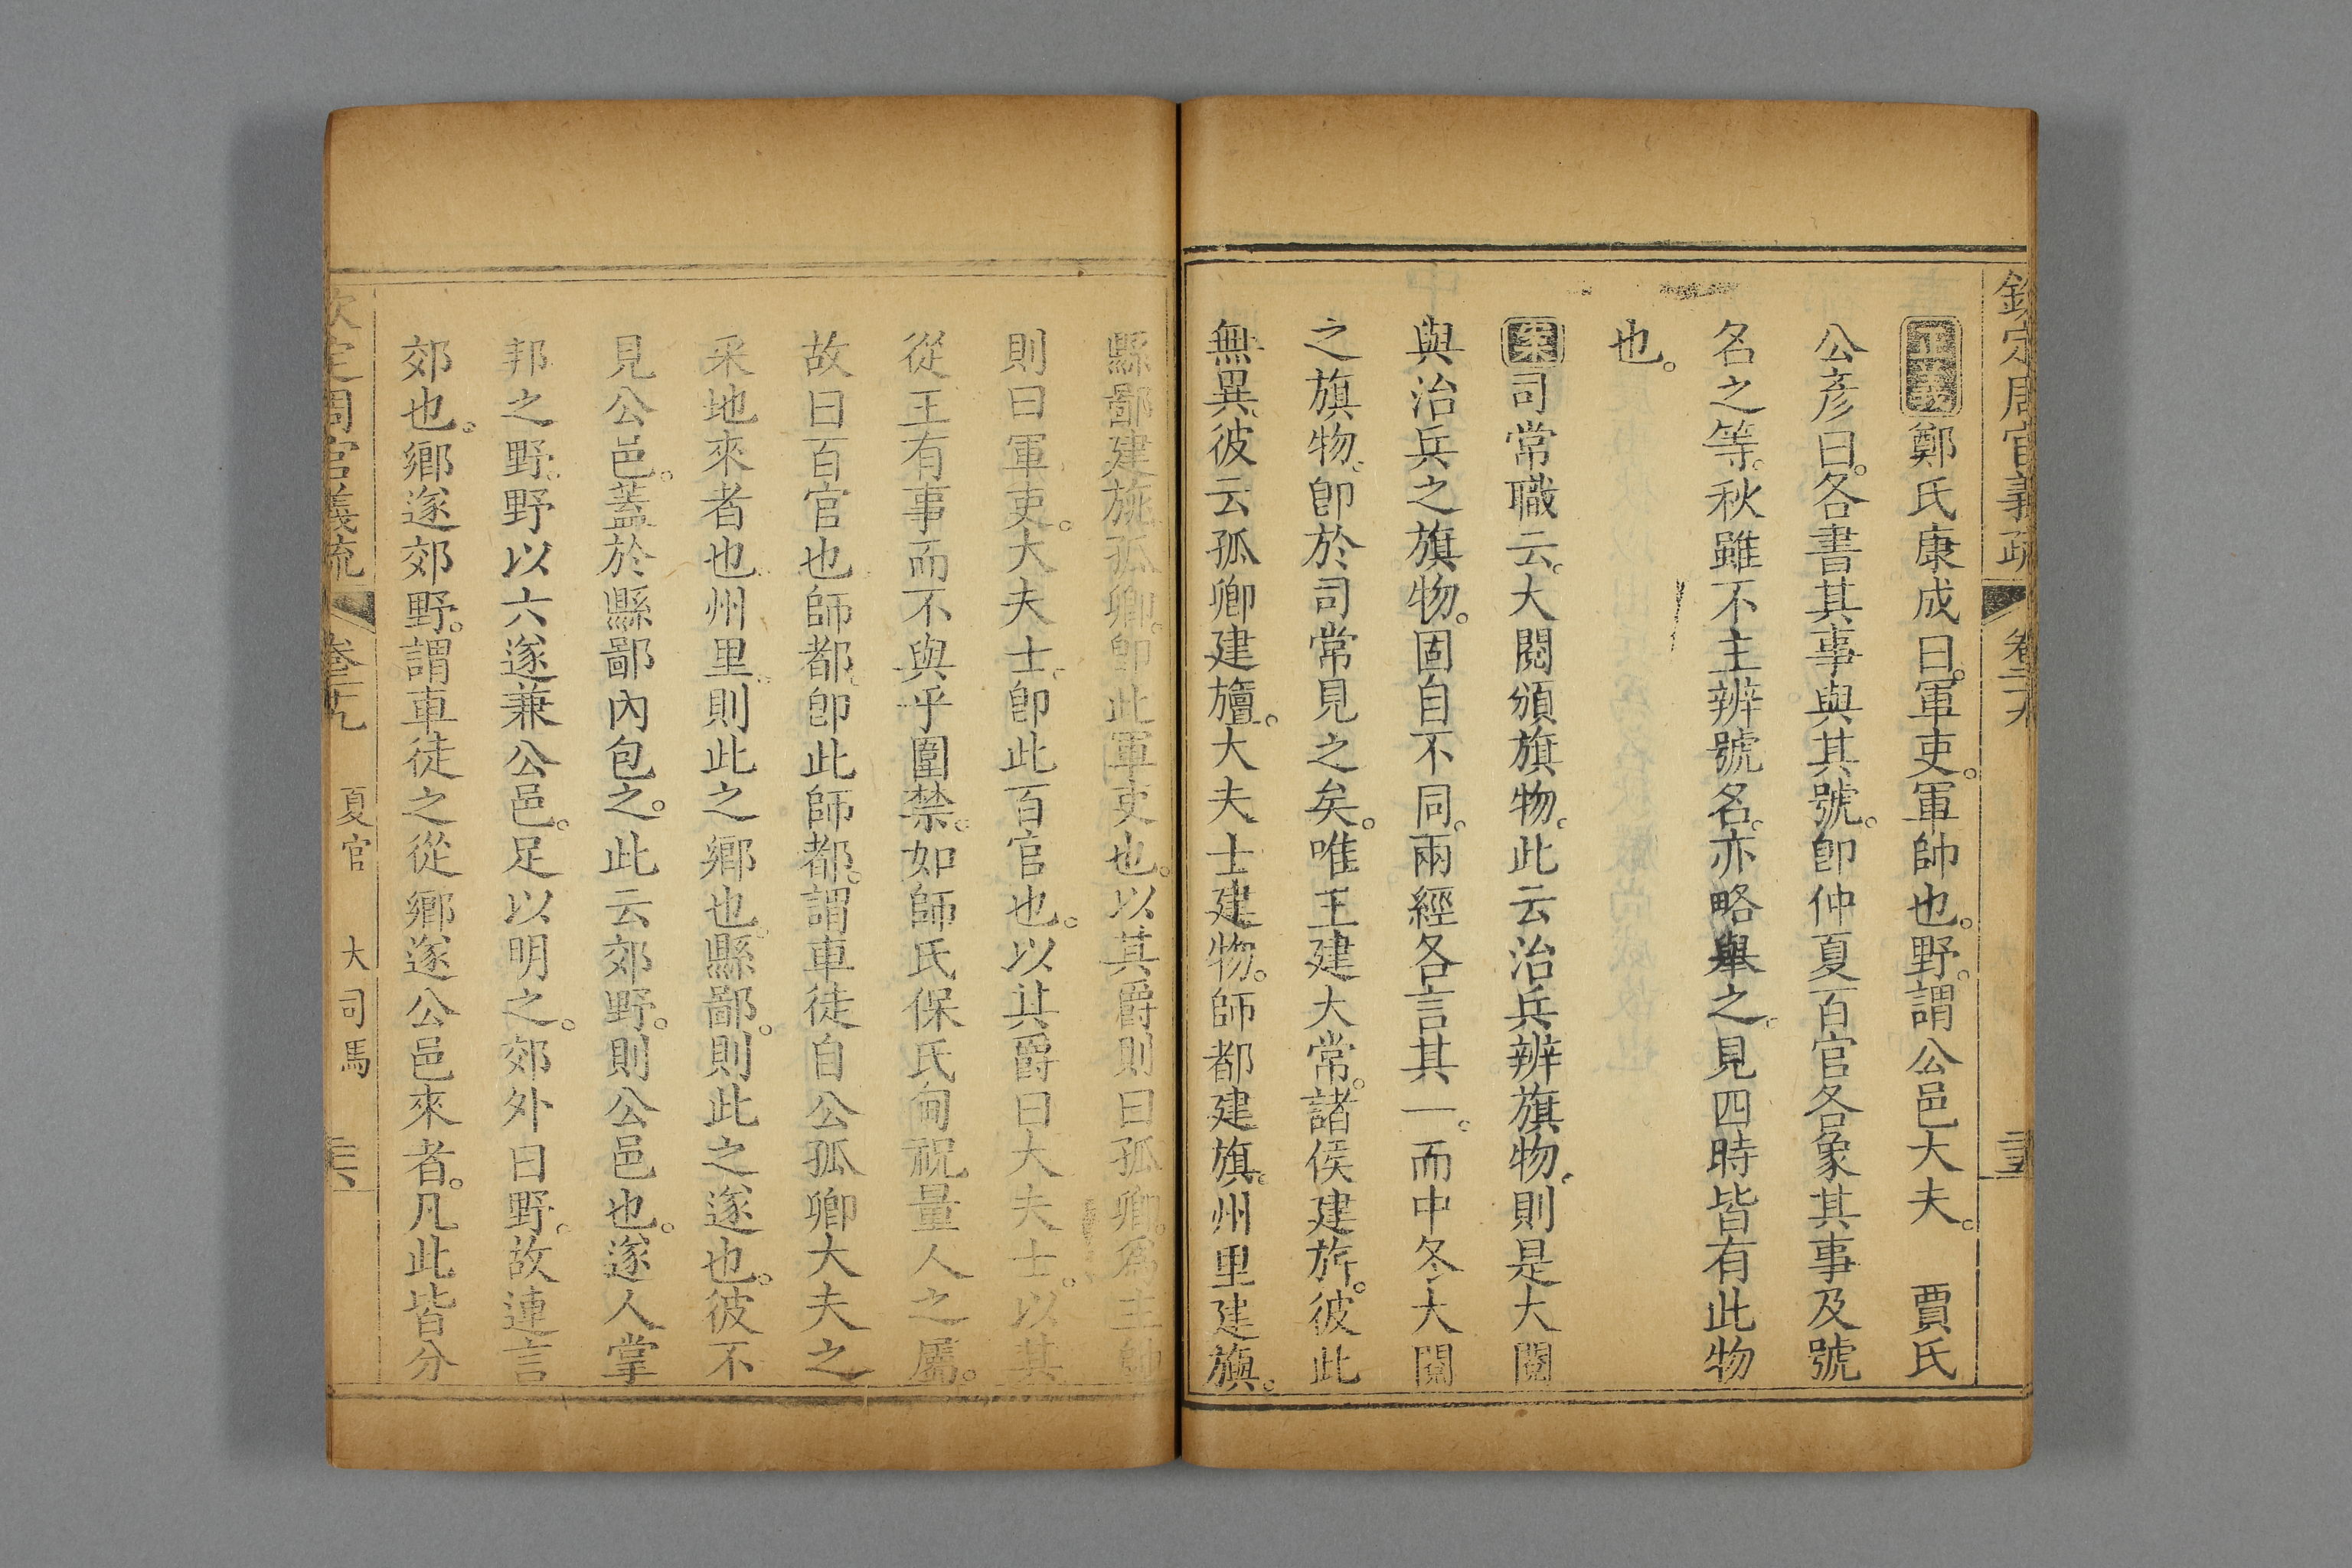 欽定周官義疏 卷二十九
正義鄭氏康成曰。軍吏。軍帥也。野。謂公邑大夫。 賈氏
公彥曰。各書其事與其號。卽仲夏百官各象其事及號
名之等。秋雖不主辨號名。亦略舉之。見四時皆有此物
也。
案司常職云。大閱頒旗物。此云治兵辨旗物。則是大閱
與治兵之旗物。固自不同。兩經各言其一。而中冬大閱
之旗物。卽於司常見之矣。唯王建大常。諸侯建旂。彼此
無異。彼云孤卿建旜。大夫士建物。師都建旗。州里建旟。
縣鄙建旐。孤卿。卽此軍吏也。以其爵則曰孤卿。為主帥
則曰軍吏。大夫士。卽此百官也。以其爵曰大夫士。以其
從王有事而不與乎圍禁。如師氏保氏甸祝量人之屬。
故曰百官也。師都。卽此師都。謂車徒自公孤卿大夫之
采地來者也。州里。則此之鄉也。縣鄙。則此之遂也。彼不
見公邑。蓋於縣鄙內包之。此云郊野。則公邑也。遂人掌
邦之野。野以六遂兼公邑。足以明之。郊外曰野。故連言
郊也。鄉遂郊野。謂車徒之從鄉遂公邑來者。凡此皆分
欽定周官義疏 卷二十九 夏官 大司馬